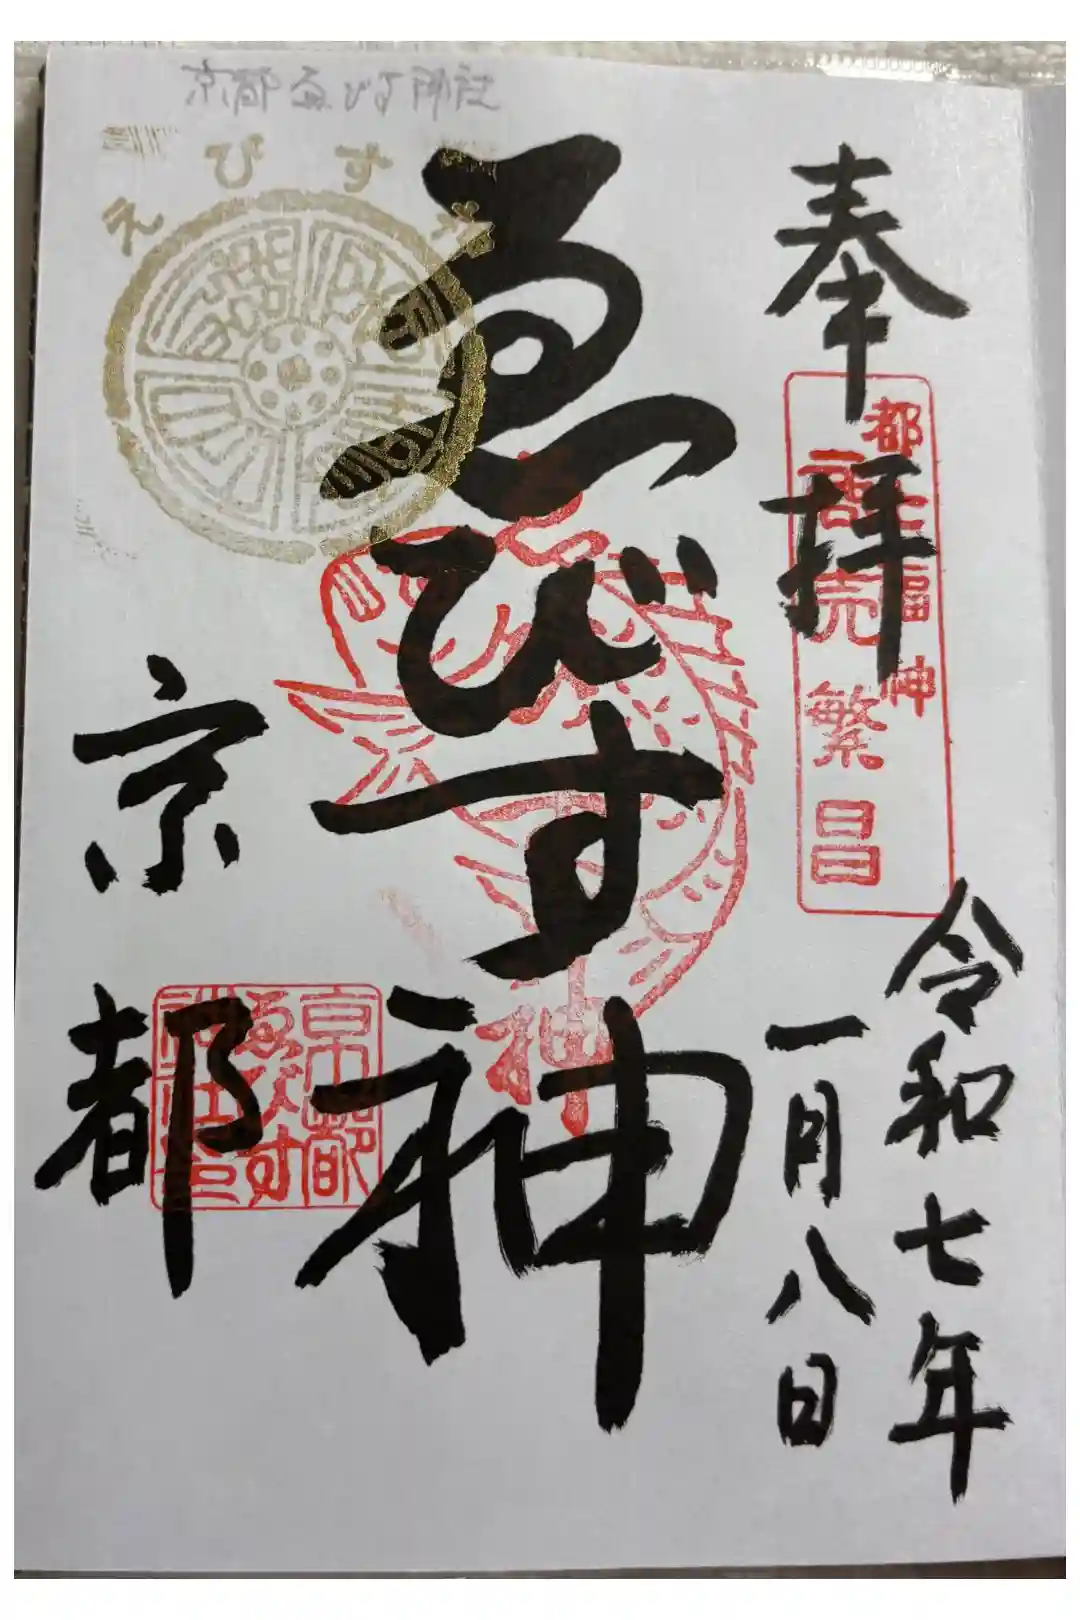 京都ゑびす神社
えびす
奉拝
都七福神
商売繁昌
令和七年
一月八日
ゑびす神
京都
京都
ゑびす